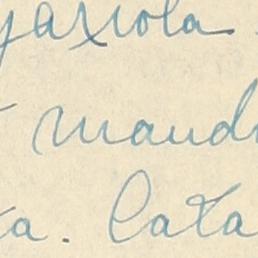 yaxiola
mand
a. Cata